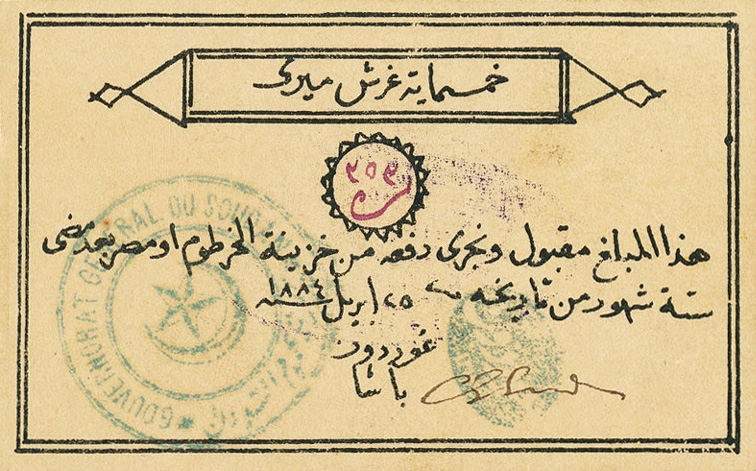 خمسماية غرش ميرى
٣٥٣
هذا المبلغ مقبول ونجرى دفعه من خزينة الخرطوم او مصر بعد مضى
ستة شهور من تاريخه ٢٥ ابريل ١٨٨٤ سنه
غوردون
باشا
GOUVERNORAT GENERAL DU SOUDAN